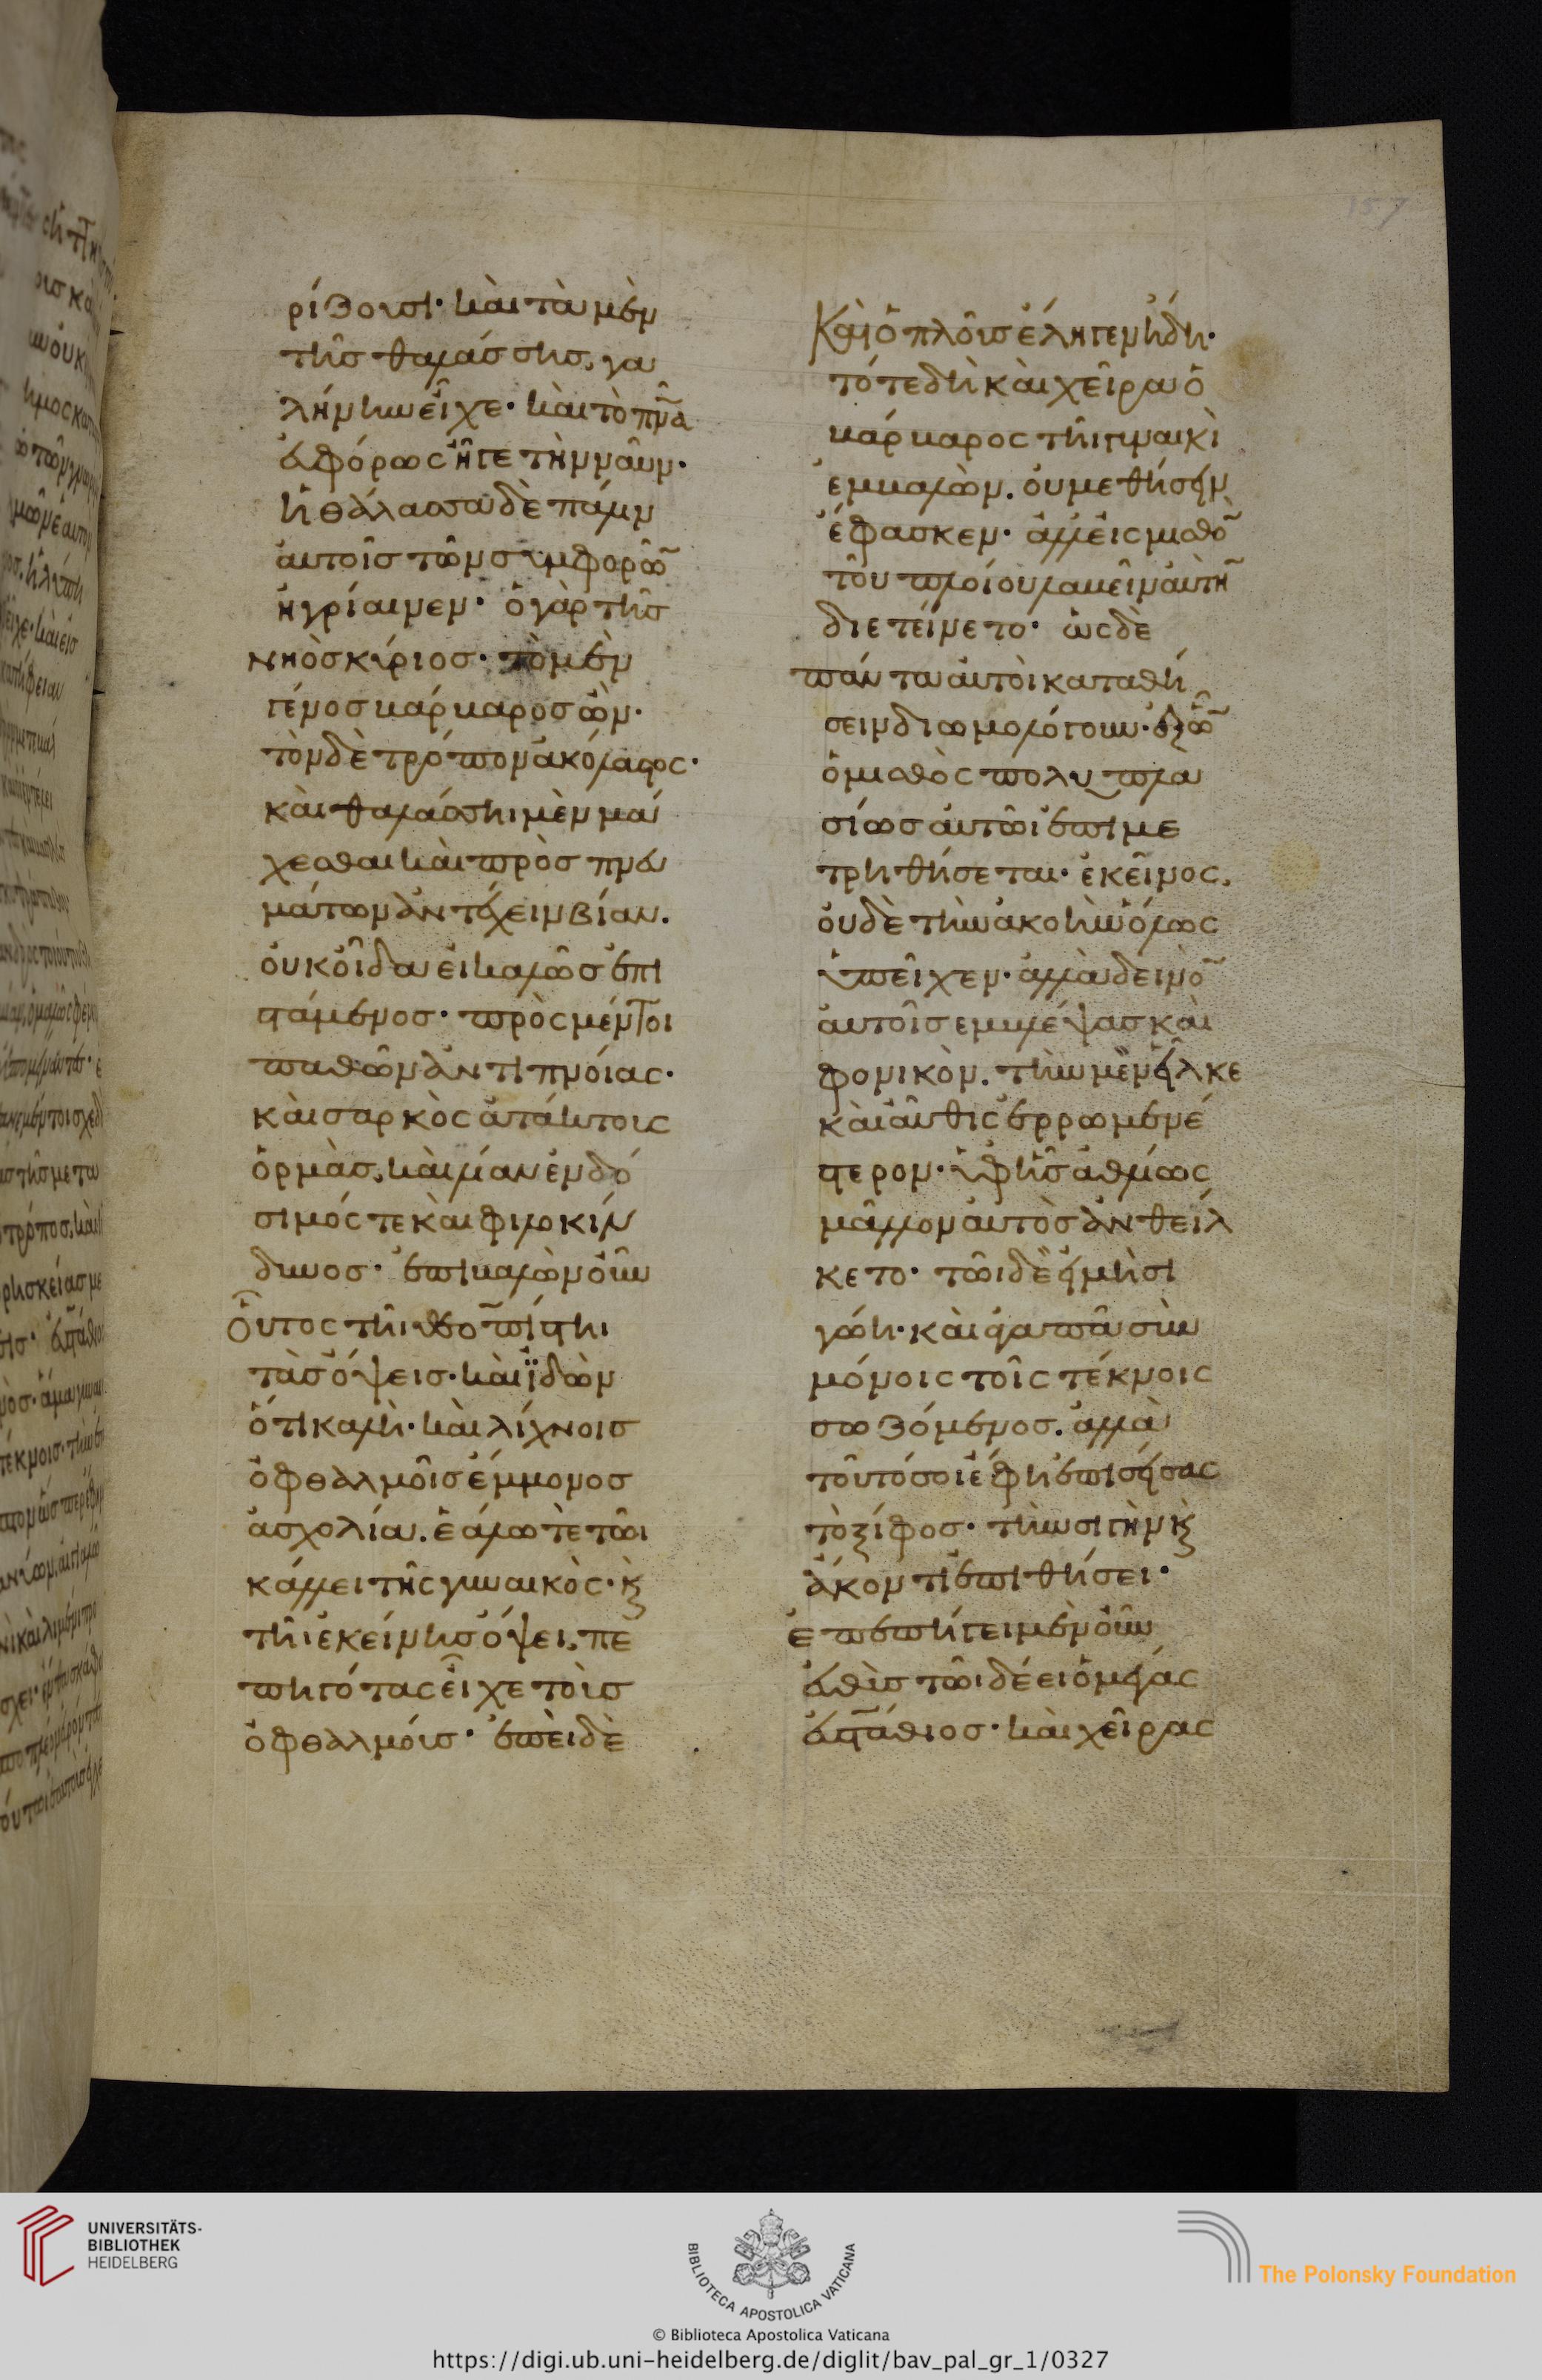 ρίζουσι· καὶ τὰ μὲν
τῆς θαλάσσης, γα
λήνην εἶχε· καὶ τὸ πν̅α
ἀφόρως ἦγε τὴν ναῦν·
ἡ θάλασσα δὲ πάλιν
αὐτοῖς τῶν συμφορῶ̅
ἠγρίαινεν· ὁ γὰρ τῆς
νηὸς κύριος· τὸ μὲν
γένος βάρβαρος ὢν·
τὸν δὲ τρόπον ἀκόλαστος·
καὶ θαλάσσηι μὲν μά
χεσθαι καὶ πρὸς πνευ
μάτων ἀντέχειν βίαν.
οὐκ οἶδα εἰ καλῶς ἐπι
στάμενος· πρὸς μέντοι
παθῶν ἀντιπνοίας·
καὶ σαρκὸς ἀτάκτους
ὁρμὰς, καὶ λίαν ἐνδό
σιμός τε καὶ φιλοκίν
δυνος· ἐπιβαλὼν οὖν
οὗτος τῆι θεοπίστηι
τὰς ὄψεις· καὶ ϊδὼν
ὅτι καλὴ· καὶ λίχνοις
ὀφθαλμοῖς ἔμμονος
ἀσχολία. ἑάλω τὲ τῶι
κάλλει τῆς γυναικὸς· κ̀
τῆι ἐκείνης ὄψει, πε
πηγότας εἶχε τοὺς
ὀφθαλμούς· ἐπεὶ δὲ
Καὶ ὁ πλοῦς ἔληγεν ἤδη·
τότε δὴ καὶ χεῖρα ὁ
βάρβαρος τῆι γυναικὶ
ἐμβαλὼν. οὐ μεθήσειν
ἔφασκεν· ἀλλ' εἰς μισθὸ̅
τοῦ πλοίου λαβεῖν αὐτὴ̅
διετείνετο· ὡς δὲ
πάντα αὐτοὶ καταθή
σειν διωμολόγουν· ἐξ ὧ̅
ὁ μισθὸς πολυπλα
σίως αὐτῶι ἐπιμε
τρηθήσεται· ἐκεῖνος,
οὐδὲ τὴν ἀκοὴν ὅλως
ὑπεῖχεν· ἀλλὰ δεινὸ̅
αὐτοῖς ἐμβλέψας καὶ
φονικὸν. τὴν μὲν εἷλκε
καὶ αὖθις ἐρρωμενέ
στερον· ὑφ' ἧς ἀθλίως
μᾶλλον αὐτὸς ἀνθείλ
κετο· τῶι δὲ εἰ μὴ σι
γώη· καὶ ἀγαπᾶ σὺν
μόνοις τοῖς τέκνοις
σωζόμενος. ἀλλὰ
τοῦτό σοι ἔφη ἐπισείσας
τὸ ξίφος· τὴν σιγὴν κ̀
ἄκοντι ἐπιθήσει·
ἐπεπήγει μὲν οὖν
εὐθὺς τῶι δέει ὁ μέγας
εὐστάθιος· καὶ χεῖρας
157
UNIVERSITÄTS-
BIBLIOTHEK
HEIDELBERG
BIBLIOTECA APOSTOLICA VATICANA
The Polonsky Foundation
© Biblioteca Apostolica Vaticana
https://digi.ub.uni-heidelberg.de/diglit/bav_pal_gr_1/0327